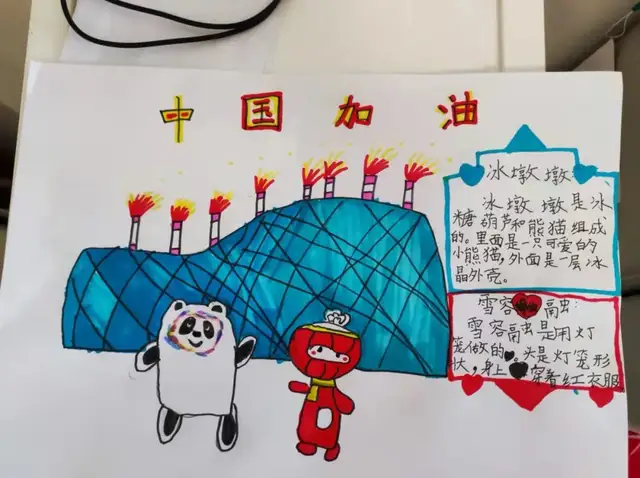 中国加油
冰墩墩
冰墩墩是冰
糖葫芦和熊猫组成
的。里面是一只可爱的
小熊猫,外面是一层冰
晶外壳。
雪容融:
雪容融是用灯
笼做的。头是灯笼形
状,身上穿着红衣服